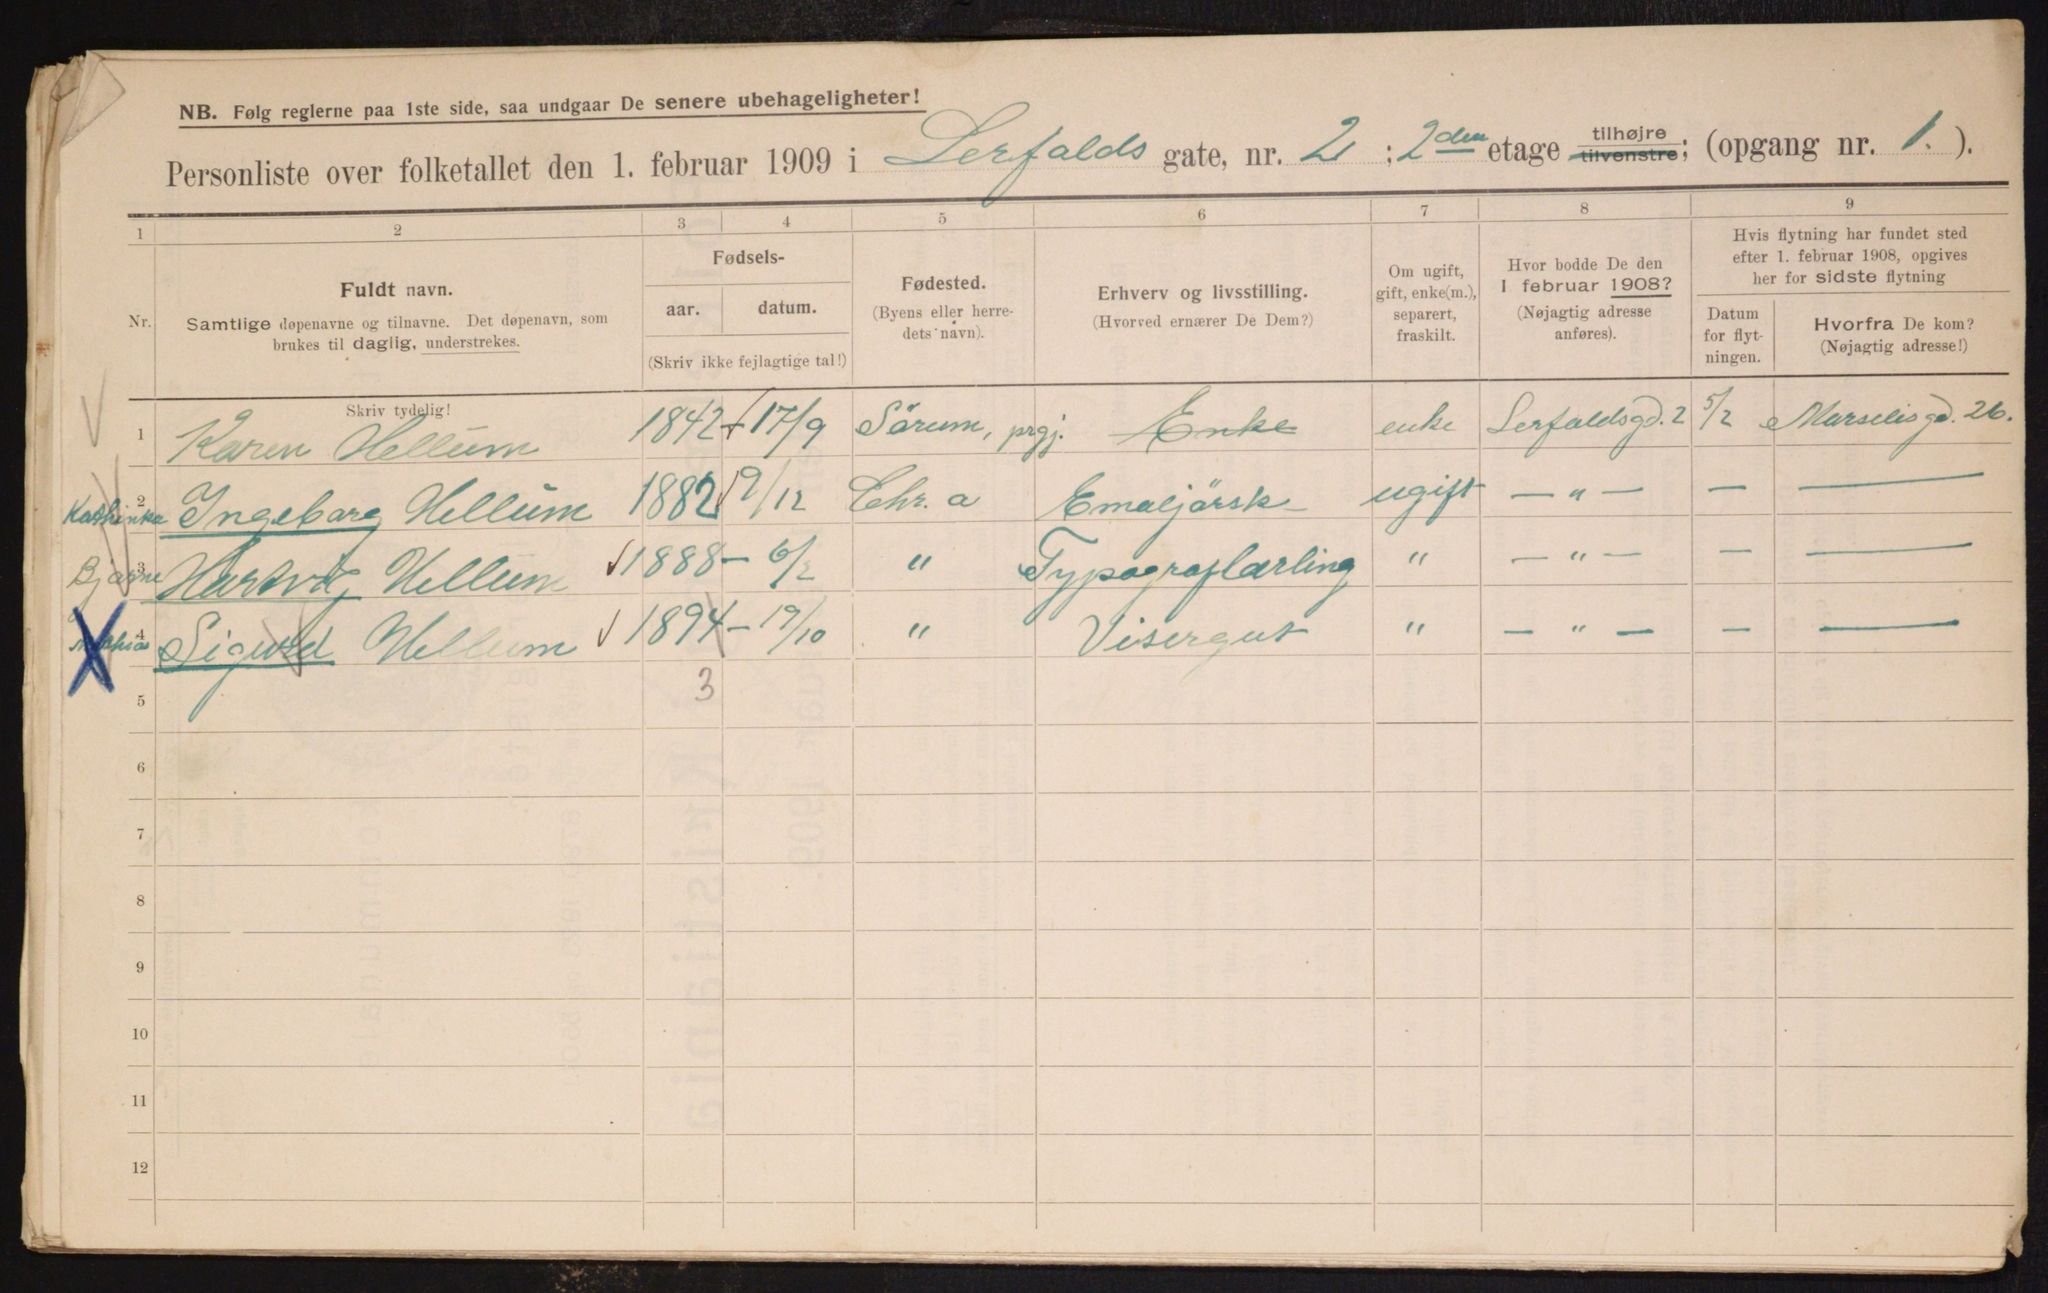 NB. Følg reglerne paa 1ste side, saa undgaar De senere ubehageligheter!
Personliste over folketallet den 1. februar 1909 i Lerfalds gate, nr. 2 ; 2den etage tilhøjre tilvenstre; (opgang nr. 1. ).
1 2 3 4 5 6 7 8 9
Nr.
Fuldt navn.
Samtlige døpenavne og tilnavne. Det døpenavn, som
brukes til daglig, understrekes.
Fødsels-
aar. datum.
(Skriv ikke fejlagtige tal!)
Fødested.
(Byens eller herre-
dets navn).
Erhverv og livsstilling.
(Hvorved ernærer De Dem?)
Om ugift,
gift, enke(m.),
separert,
fraskilt.
Hvor bodde De den
1 februar 1908?
(Nøjagtig adresse
anføres).
Hvis flytning har fundet sted
efter 1. februar 1908, opgives
her for sidste flytning
Datum
for flyt-
ningen.
Hvorfra De kom?
(Nøjagtig adresse!)
Skriv tydelig!
1 Karen Hellum 1842 - 17/9 Sörum, prgj. Enke enke Lerfaldsgd. 2 5/2 Marselisgd. 26.
2 Kathinka Ingeborg Hellum 1882 9/12 Chr. a Emaljörsk ugift — " — — —
3 Bjarne Hartvig Hellum 1888 - 6/2 " Typograflærling " — " — — —
4 Sigurd Hellum 1894 - 19/10 " Visergut " — " — — —
3
5
6
7
8
9
10
11
12